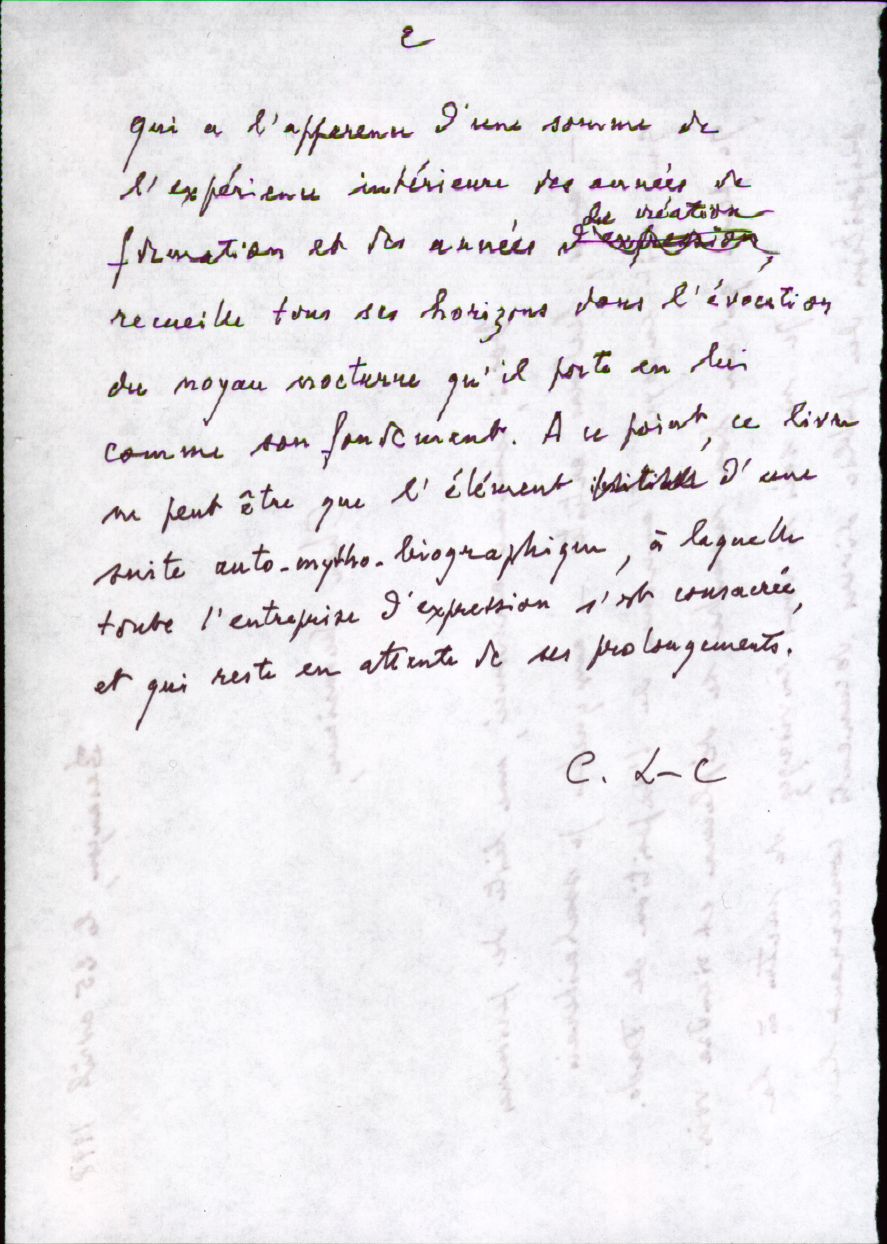 2
qui a l'apparence d'une somme de
l'expérience intérieure des années de
de création
formation et des années d'expression,
recueille tous ses horizons dans l'évocation
du noyau nocturne qu'il porte en lui
comme son fondement. A ce point, ce livre
ne peut être que l'élément d'une
suite auto-mytho-biographique, à laquelle
toute l'entreprise d'expression s'est consacrée,
et qui reste en attente de ses prolongements.
C. L-C